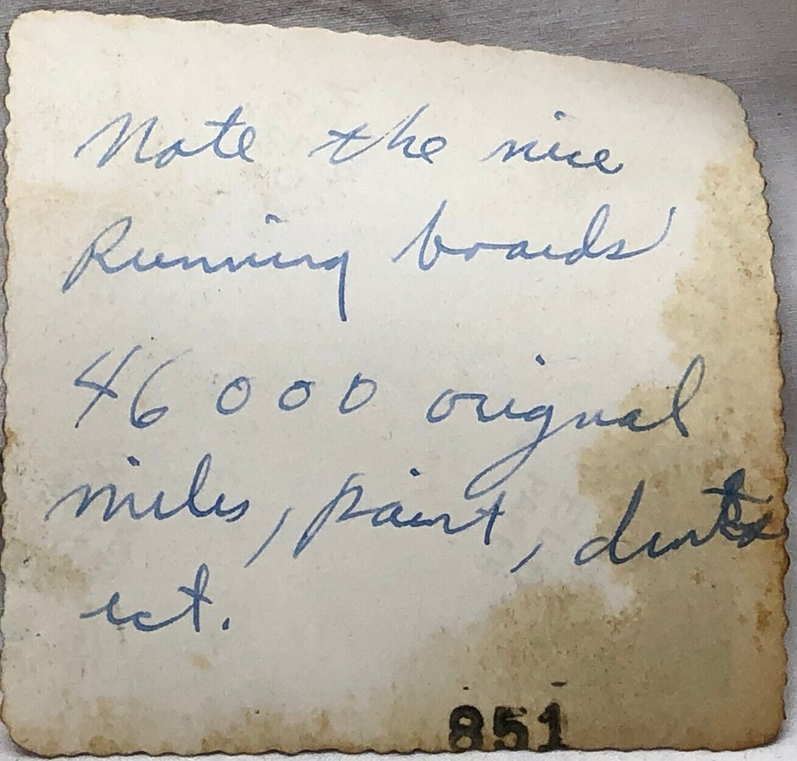 Note the nice
Running boards
46000 orignal
miles, paint, dents
ect.
851